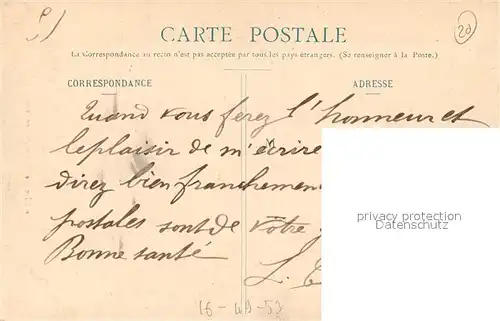 CARTE POSTALE
20
La Correspondance au recto n'est pas acceptée par tous les pays étrangers. (Se renseigner à la Poste.)
CORRESPONDANCE
ADRESSE
Quand vous ferez l'honneur et
le plaisir de m'écrire
direz bien franchemen
postales sont de votre
Bonne santé
L.
privacy protection
Datenschutz
16-WB-53